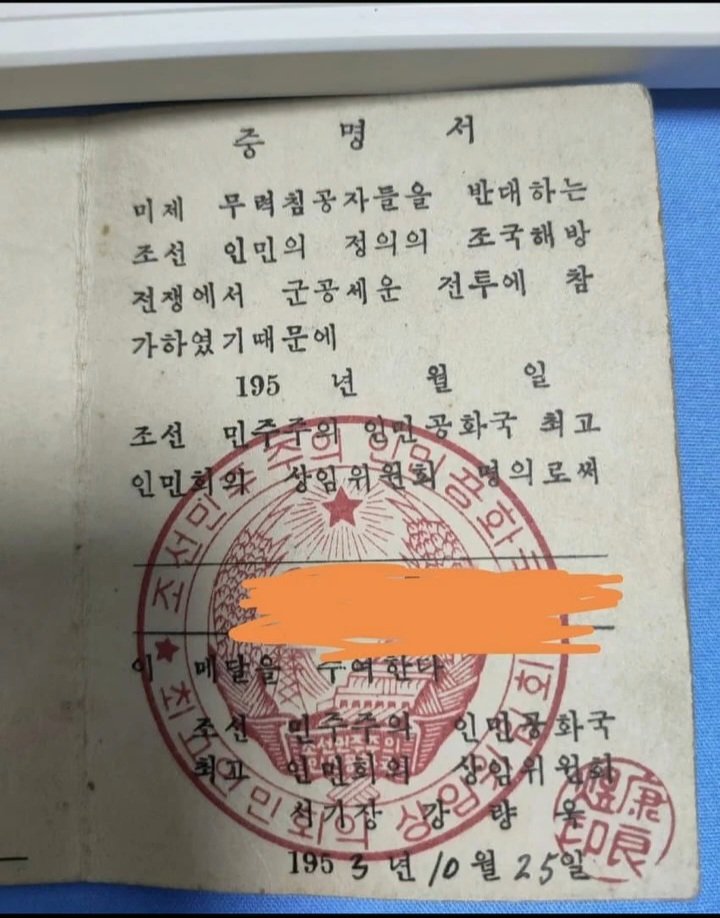 증 명 서
미제 무력침공자들을 반대하는
조선 인민의 정의의 조국해방
전쟁에서 군공세운 전투에 참
가하였기때문에
195 년 월 일
조선 민주주의 인민공화국 최고
인민회의 상임위원회 명의로써
이 메달을 수여한다
조선 민주주의 인민공화국
최고 인민회의 상임위원회
서기장 강 량 욱
1953년 10월 25일
조선민주주의 인민공화국
최고인민회의 상임위원회
康良煜印